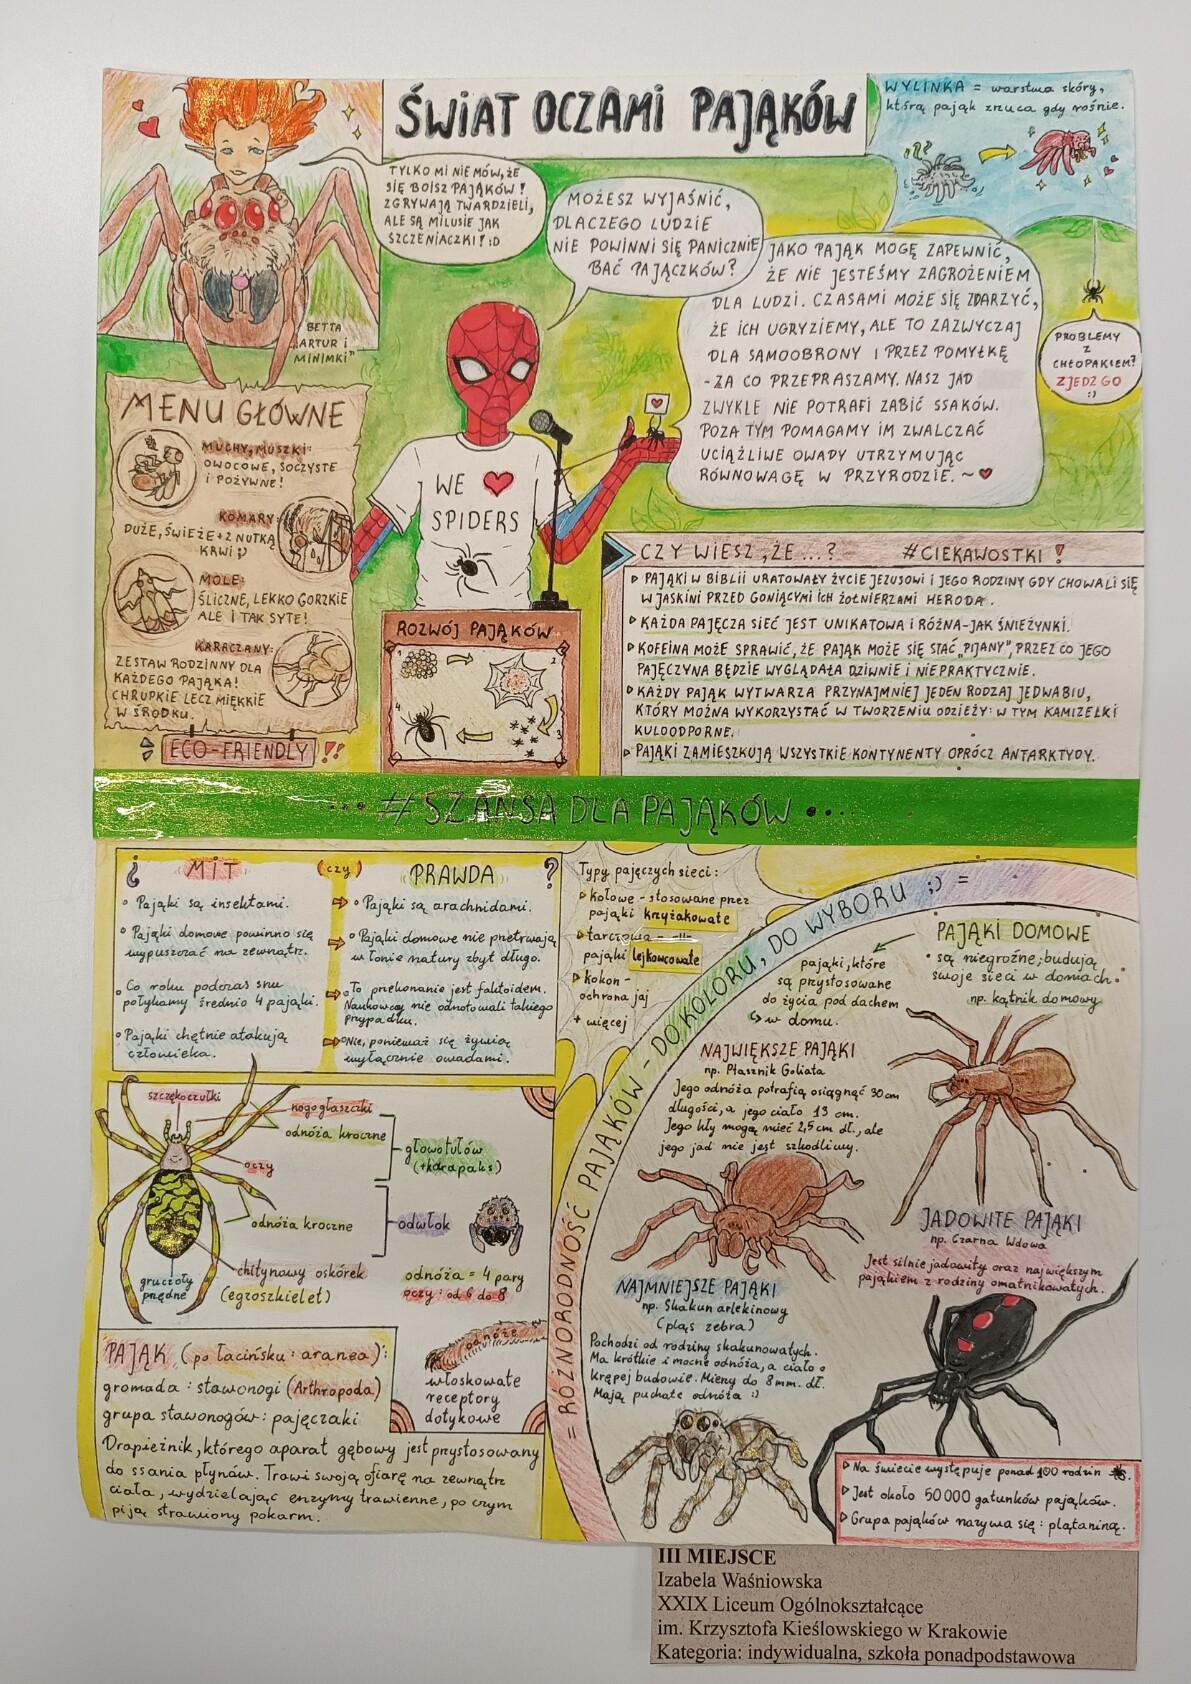 ŚWIAT OCZAMI PAJĄKÓW
WYLINKA = warstwa skóry,
którą pająk zrzuca gdy rośnie.
TYLKO MI NIE MÓW, ŻE
SIĘ BOISZ PAJĄKÓW!
ZGRYWAJĄ TWARDZIELI,
ALE SĄ MILUSIE JAK
SZCZENIACZKI! :D
BETTA
"ARTUR i
MINIMKI"
MOŻESZ WYJAŚNIĆ,
DLACZEGO LUDZIE
NIE POWINNI SIĘ PANICZNIE
BAĆ PAJĄCZKÓW?
JAKO PAJĄK MOGĘ ZAPEWNIĆ,
ŻE NIE JESTEŚMY ZAGROŻENIEM
DLA LUDZI. CZASAMI MOŻE SIĘ ZDARZYĆ,
ŻE ICH UGRYZIEMY, ALE TO ZAZWYCZAJ
DLA SAMOOBRONY I PRZEZ POMYŁKĘ
- ZA CO PRZEPRASZAMY. NASZ JAD
ZWYKLE NIE POTRAFI ZABIĆ SSAKÓW.
POZA TYM POMAGAMY IM ZWALCZAĆ
UCIĄŻLIWE OWADY UTRZYMUJĄC
RÓWNOWAGĘ W PRZYRODZIE. ~ ♥
PROBLEMY
Z
CHŁOPAKIEM?
ZJEDZ GO
:)
MENU GŁÓWNE
MUCHY, MUSZKI:
OWOCOWE, SOCZYSTE
I POŻYWNE!
KOMARY:
DUŻE, ŚWIEŻE + Z NUTKĄ
KRWI ;)
MOLE:
ŚLICZNE, LEKKO GORZKIE
ALE I TAK SYTE!
KARACZANY:
ZESTAW RODZINNY DLA
KAŻDEGO PAJĄKA!
CHRUPKIE LECZ MIĘKKIE
W ŚRODKU.
ECO-FRIENDLY !!
WE ♥
SPIDERS
ROZWÓJ PAJĄKÓW
1
2
3
4
CZY WIESZ, ŻE...? #CIEKAWOSTKI !
PAJĄKI W BIBLII URATOWAŁY ŻYCIE JEZUSOWI I JEGO RODZINY GDY CHOWALI SIĘ
W JASKINI PRZED GONIĄCYMI ICH ŻOŁNIERZAMI HERODA.
KAŻDA PAJĘCZA SIEĆ JEST UNIKATOWA I RÓŻNA - JAK ŚNIEŻYNKI.
KOFEINA MOŻE SPRAWIĆ, ŻE PAJĄK MOŻE SIĘ STAĆ „PIJANY", PRZEZ CO JEGO
PAJĘCZYNA BĘDZIE WYGLĄDAŁA DZIWNIE I NIEPRAKTYCZNIE.
KAŻDY PAJĄK WYTWARZA PRZYNAJMNIEJ JEDEN RODZAJ JEDWABIU,
KTÓRY MOŻNA WYKORZYSTAĆ W TWORZENIU ODZIEŻY: W TYM KAMIZELKI
KULOODPORNE.
PAJĄKI ZAMIESZKUJĄ WSZYSTKIE KONTYNENTY OPRÓCZ ANTARKTYDY.
... # SZANSA DLA PAJĄKÓW ...
¿ MIT (czy) PRAWDA ?
Pająki są insektami.
Pająki są arachnidami.
Pająki domowe powinno się
wypuszczać na zewnątrz.
Pająki domowe nie przetrwają
w łonie natury zbyt długo.
Co roku podczas snu
połykamy średnio 4 pająki.
To przekonanie jest faktoidem.
Naukowcy nie odnotowali takiego
przypadku.
Pająki chętnie atakują
człowieka.
Nie, ponieważ się żywią
wyłącznie owadami.
Typy pajęczych sieci:
kołowe - stosowane przez
pająki krzyżakowate
tarczowa - -||-
pająki lejkowcowate
kokon -
ochrona jaj
+ więcej
szczękoczułki
nogogłaszczki
odnóża kroczne
głowotułów
(+karapaks)
oczy
odnóża kroczne
odwłok
chitynowy oskórek
(egzoszkielet)
gruczoły
przędne
odnóża = 4 pary
oczy: od 6 do 8
odnóże
włoskowate
receptory
dotykowe
PAJĄK (po łacińsku: aranea):
gromada: stawonogi (Arthropoda)
grupa stawonogów: pajęczaki
Drapieżnik, którego aparat gębowy jest przystosowany
do ssania płynów. Trawi swoją ofiarę na zewnątrz
ciała, wydzielając enzymy trawienne, po czym
piją strawiony pokarm.
= RÓŻNORODNOŚĆ PAJĄKÓW - DO KOLORU, DO WYBORU ;) =
PAJĄKI DOMOWE
są niegroźne; budują
swoje sieci w domach.
np. kątnik domowy
pająki, które
są przystosowane
do życia pod dachem
↳ w domu.
NAJWIĘKSZE PAJĄKI
np. Ptasznik Goliata
Jego odnóża potrafią osiągnąć 30 cm
długości, a jego ciało 13 cm.
Jego kły mogą mieć 2,5 cm dł., ale
jego jad nie jest szkodliwy.
JADOWITE PAJĄKI
np. Czarna Wdowa
Jest silnie jadowity oraz największym
pająkiem z rodziny omatnikowatych.
NAJMNIEJSZE PAJĄKI
np. Skakun arlekinowy
(pląs zebra)
Pochodzi od rodziny skakunowatych.
Ma krótkie i mocne odnóża, a ciało o
krępej budowie. Mierzy do 8 mm. dł.
Mają puchate odnóża :)
Na świecie występuje ponad 100 rodzin
Jest około 50 000 gatunków pająków.
Grupa pająków nazywa się: plątaniną.
III MIEJSCE
Izabela Waśniowska
XXIX Liceum Ogólnokształcące
im. Krzysztofa Kieślowskiego w Krakowie
Kategoria: indywidualna, szkoła ponadpodstawowa